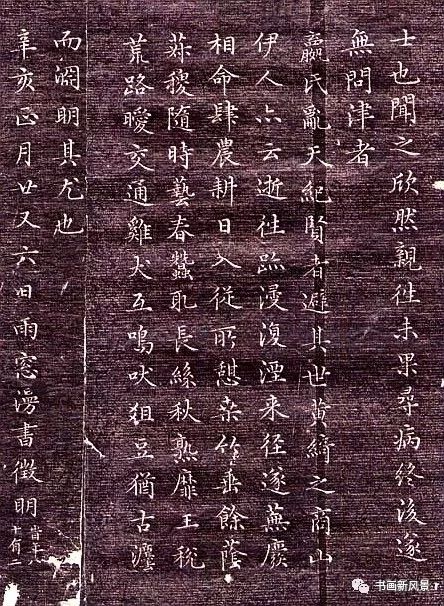 士也聞之欣然親往未果尋病終後遂
無問津者
嬴氏亂天紀賢者避其世黄綺之商山
伊人亦云逝往跡漫復湮来径遂蕪廢
相命肆農耕日入從所憇桑竹垂餘蔭
菽稷隨時藝春蠶取長絲秋熟靡王稅
荒路曖交通雞犬互鳴吠俎豆猶古灋
而淵明其尤也
辛亥正月廿又六日雨窓漫書徵明
時年八
十有二
书画新风景